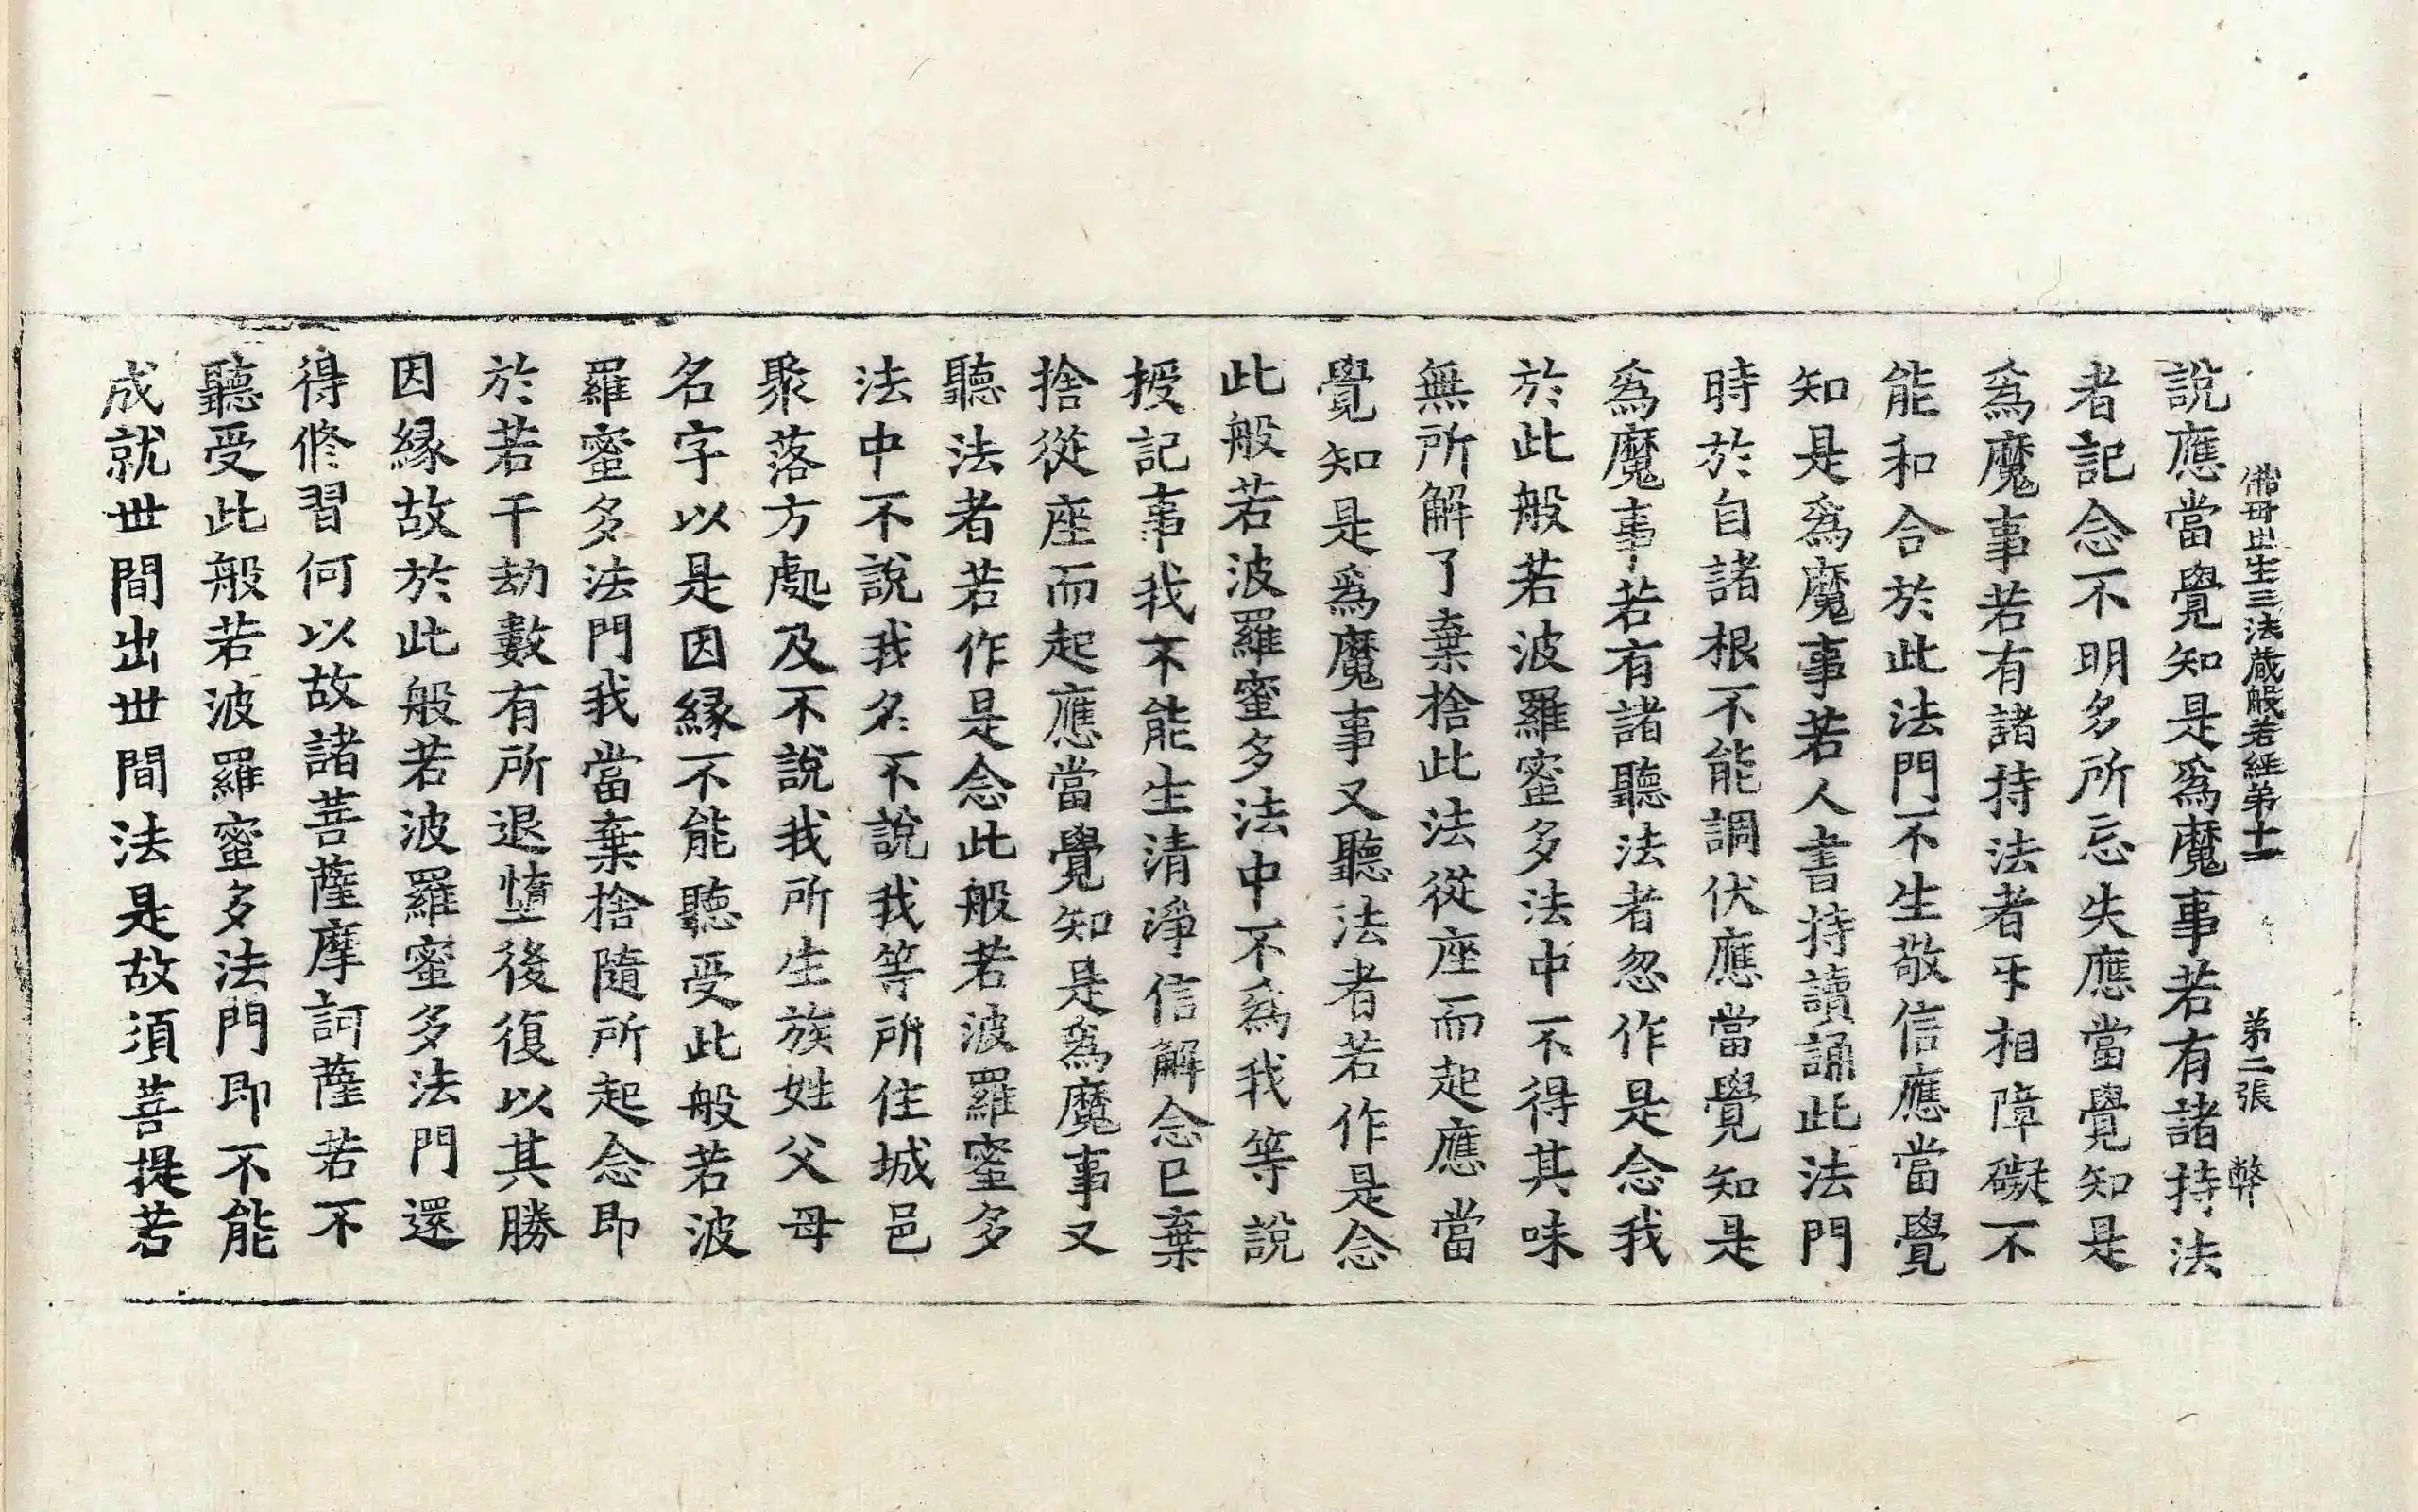 佛母出生三法藏般若經第十一 第二張 弊
說應當覺知是為魔事若有諸持法
者記念不明多所忘失應當覺知是
為魔事若有諸持法者㸦相障礙不
能和合於此法門不生敬信應當覺
知是為魔事若人書持讀誦此法門
時於自諸根不能調伏應當覺知是
為魔事若有諸聽法者忽作是念我
於此般若波羅蜜多法中不得其味
無所解了棄捨此法從座而起應當
覺知是為魔事又聽法者若作是念
此般若波羅蜜多法中不為我等說
授記事我不能生清淨信解念已棄
捨從座而起應當覺知是為魔事又
聽法者若作是念此般若波羅蜜多
法中不說我名不說我等所住城邑
聚落方處及不說我所生族姓父母
名字以是因緣不能聽受此般若波
羅蜜多法門我當棄捨隨所起念即
於若干劫數有所退墮後復以其勝
因緣故於此般若波羅蜜多法門還
得修習何以故諸菩薩摩訶薩若不
聽受此般若波羅蜜多法門即不能
成就世間出世間法是故須菩提若